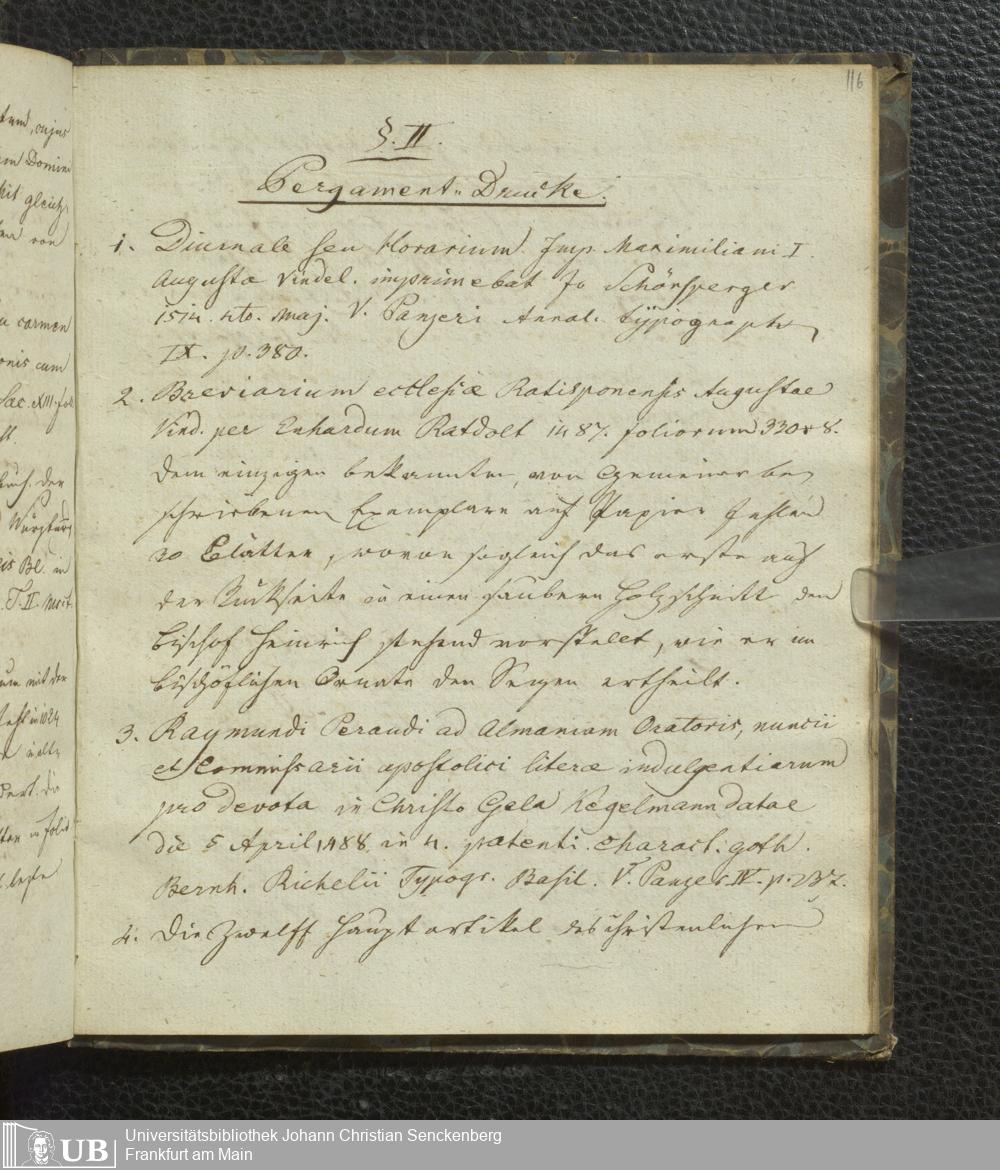 116
§. II.
Pergament-Drucke.
1. Diurnale seu Horarium Imp. Maximiliani I.
Augustæ Vindel. imprimebat Jo Schönsperger
1514. 4to. maj. V. Panzeri Annal. typograph
IX. p. 380.
2. Breviarium ecclesiæ Ratisponensis Augustae
Vind. per Erhardum Ratdolt 1487. foliorum 330 & 8.
dem einzigen bekannten, von Gemeiner be
schriebenen Exemplare auf Papier fehlen
30 Blätter, wovon sogleich das erste auf
der Rückseite in einen saubern Holzschnitt den
Bischof Heinrich stehend vorstellt, wie er im
bischöflichen Ornate den Segen ertheilt.
3. Raymundi Peraudi ad Almaniam Oratoris, nuncii
et Commissarii apostolici literæ indulgentiarum
pro devota in Christo Gela Kegelmann datae
die 5 April 1488. in 4. patenti. charact. goth.
Bernh. Richelii Typogr. Basil. V. Panzer. IV. p. 237.
4. Die Zwelff Hauptartikel des christenlichen
tum, cujus
Domini
gleich
von
carmen
cum
Sæc. XIII. fol
der
Würzburg
Bl. in
T. II.
mit der
in 1024
leste
UB
Universitätsbibliothek Johann Christian Senckenberg
Frankfurt am Main